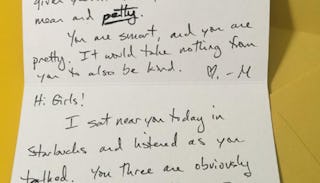 mean and petty.
You are smart, and you are
pretty. It would take nothing from
you to also be kind. ♡, -M
Hi Girls!
I sat near you today in
Starbucks and listened as you
talked. You three are obviously